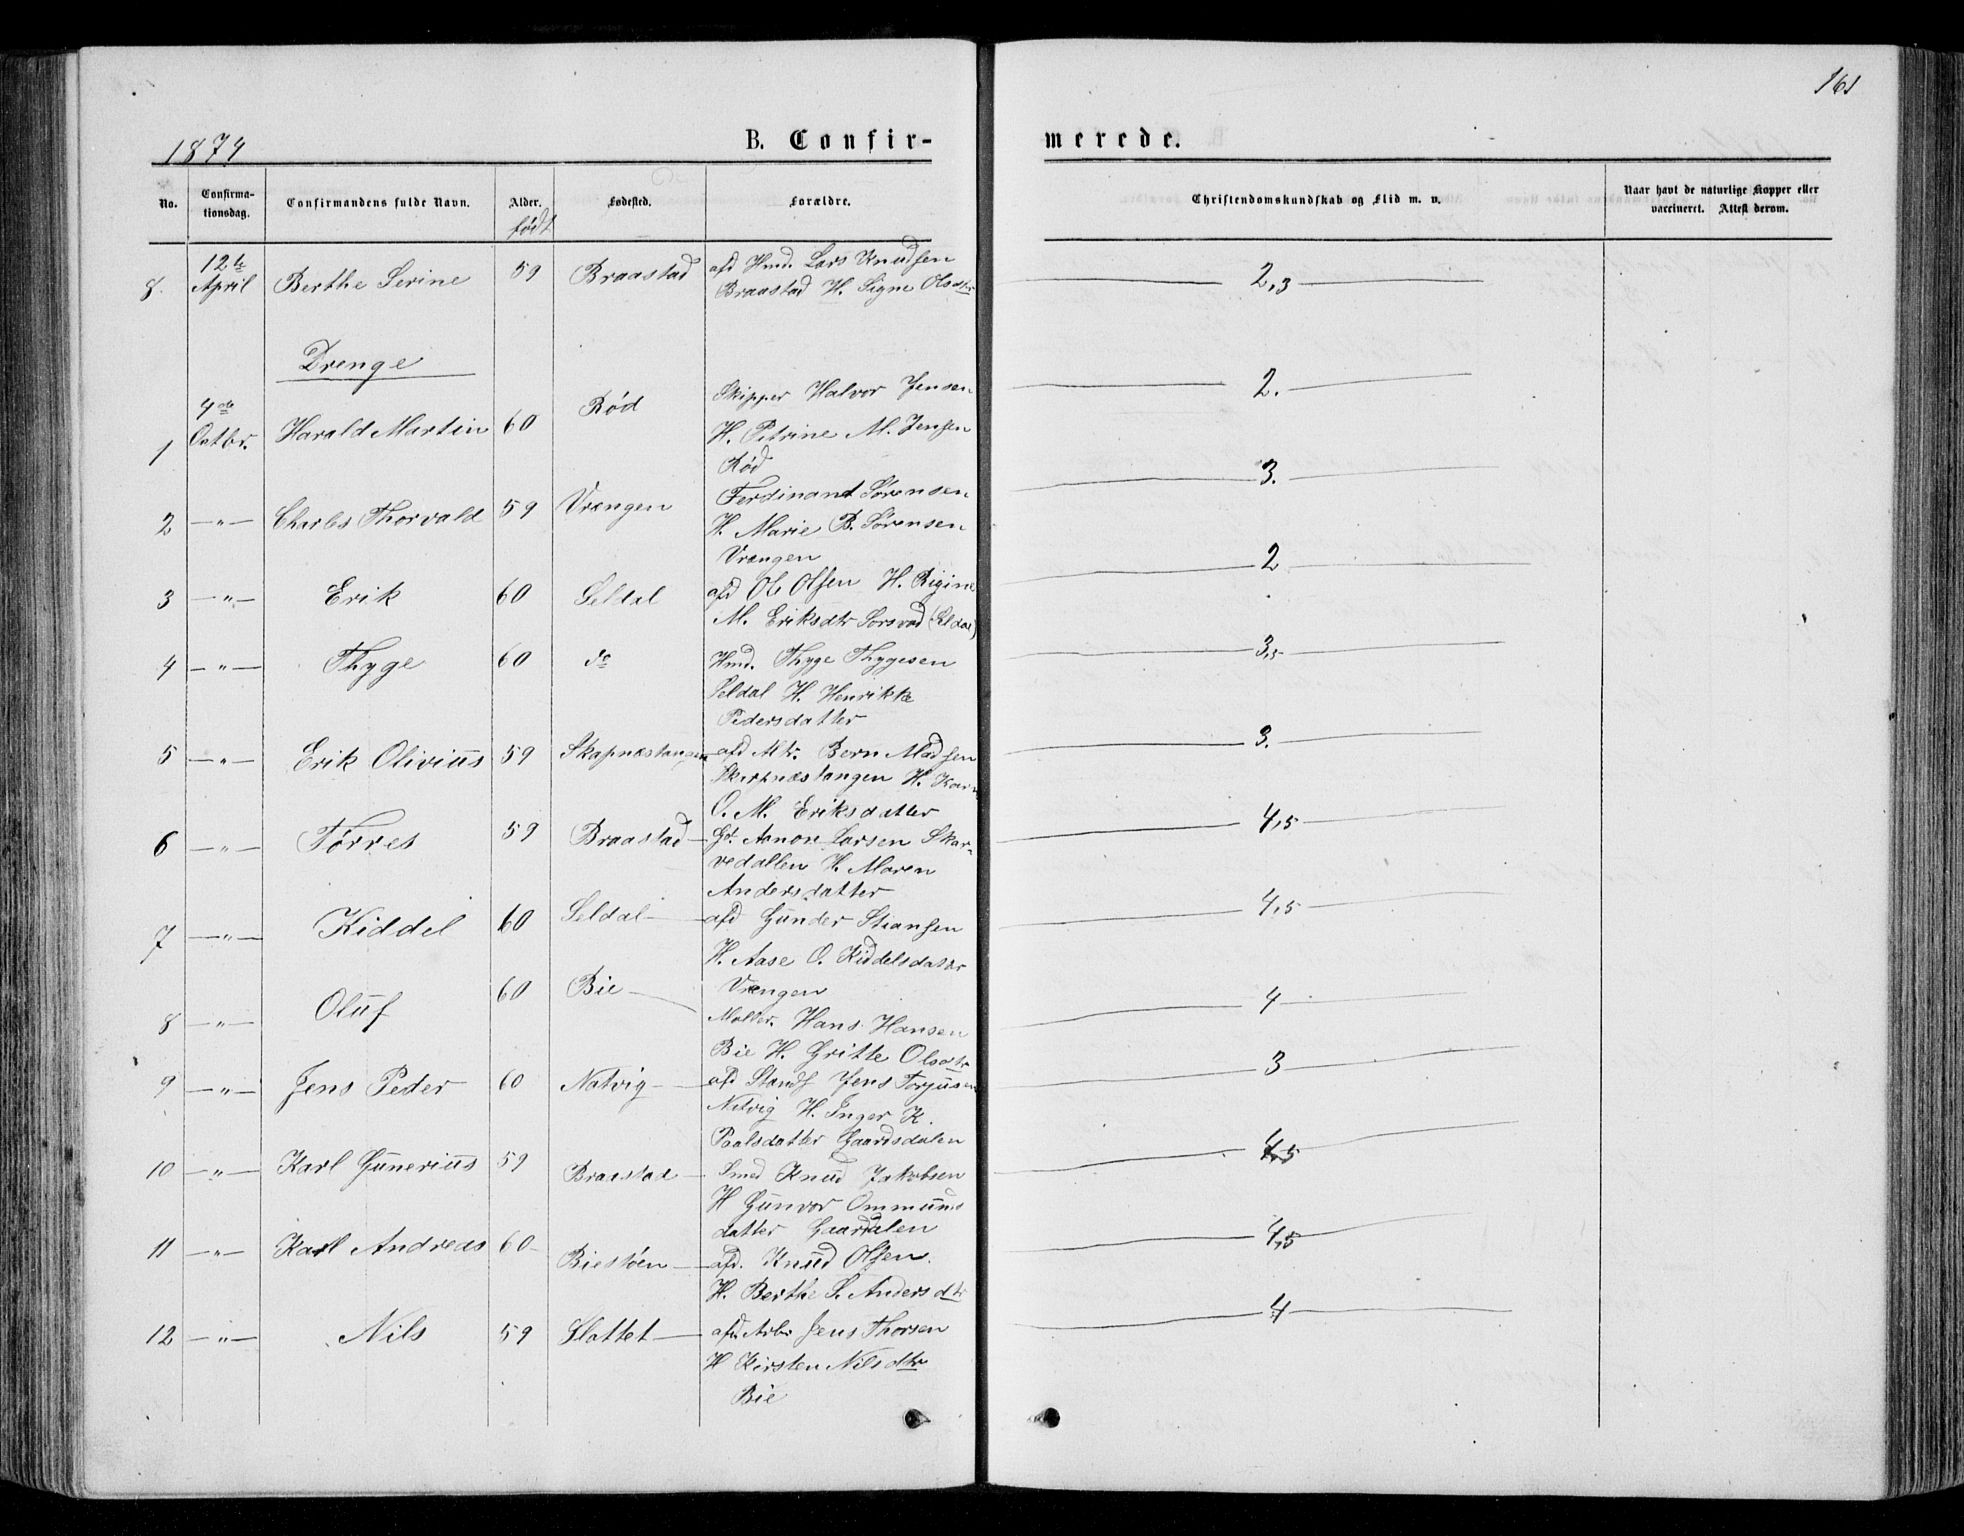 161
1874 B. Confir-merede.
No. Confirma-tionsdag. Confirmandens fulde Navn. Alder. født Fødested. Forældre. Christendomskundskab og Flid m. v. Naar havt de naturlige Kopper eller vaccineret. Attest derom.
8. 12te April Berthe Serine 59 Braastad afd Hmd. Lars Knudsen 2,3
Braastad H. Signe Olsdtr
Drenge
1 4de Octbr. Harald Martin 60 Rød Skipper Halvor Jensen 2.
H. Petrine M. Jensen
Rød
2 —"— Charles Thorvald 59 Vrængen Ferdinant Sørensen 3.
H. Marie B. Sørensen
Vrængen
3 —"— Erik 60 Seldal afd Ole Olsen H. Rigine 2
M. Eriksdtr (Seldal)
4 —"— Thyge 60 do Hmd. Thyge Thygesen 3,5
Seldal H. Henrikke
Pedersdatter
5 —"— Erik Olivius 59 Skapnæstangen afd Mtr. Bern Madsen 3.
Skarpnæstangen H. Karn
O. M. Eriksdatter
6 —"— Tørres 59 Braastad Gd. Aanon Larsen Skar- 4,5
vedallen H. Maren
Andersdatter
7 —"— Kiddel 60 Seldal afd Gunder Stiansen 4,5
H. Aase O. Kiddelsdatter
Vrængen
8 —"— Oluf 60 Bie Hans Hansen 4
Bie H. Gritte Olsdtr
9 —"— Jens Peder 60 Natvig afd Jens Torjusen 3
Natvig H. Inger K.
Paalsdatter Gaardsdalen
10 —"— Karl Gunerius 59 Braastad Smed Knud Jakobsen 4,5
H Gunvor Ommunds
datter Gaardalen
11 —"— Karl Andreas 60 Biestøen afd. Knud Olsen. 4,5
H. Berthe S. Andersdtr
12 —"— Nils 59 Slottet afd. Arb. Jens Thorsen 4
H Kirsten Nilsdtr
Bie